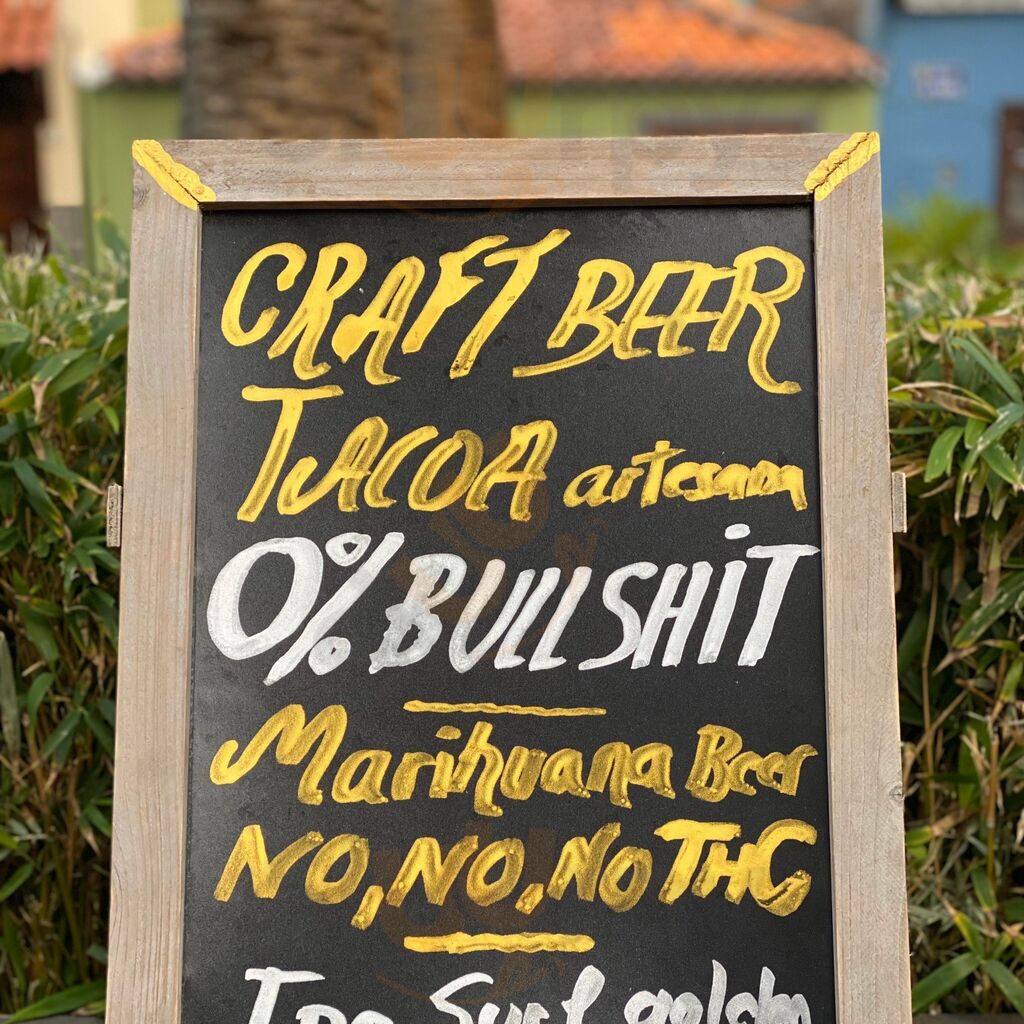 CRAFT BEER
TACOA artesana
0% BULLSHiT
Marihuana Beer
NO, NO, NO THC
Ipa Surf golden